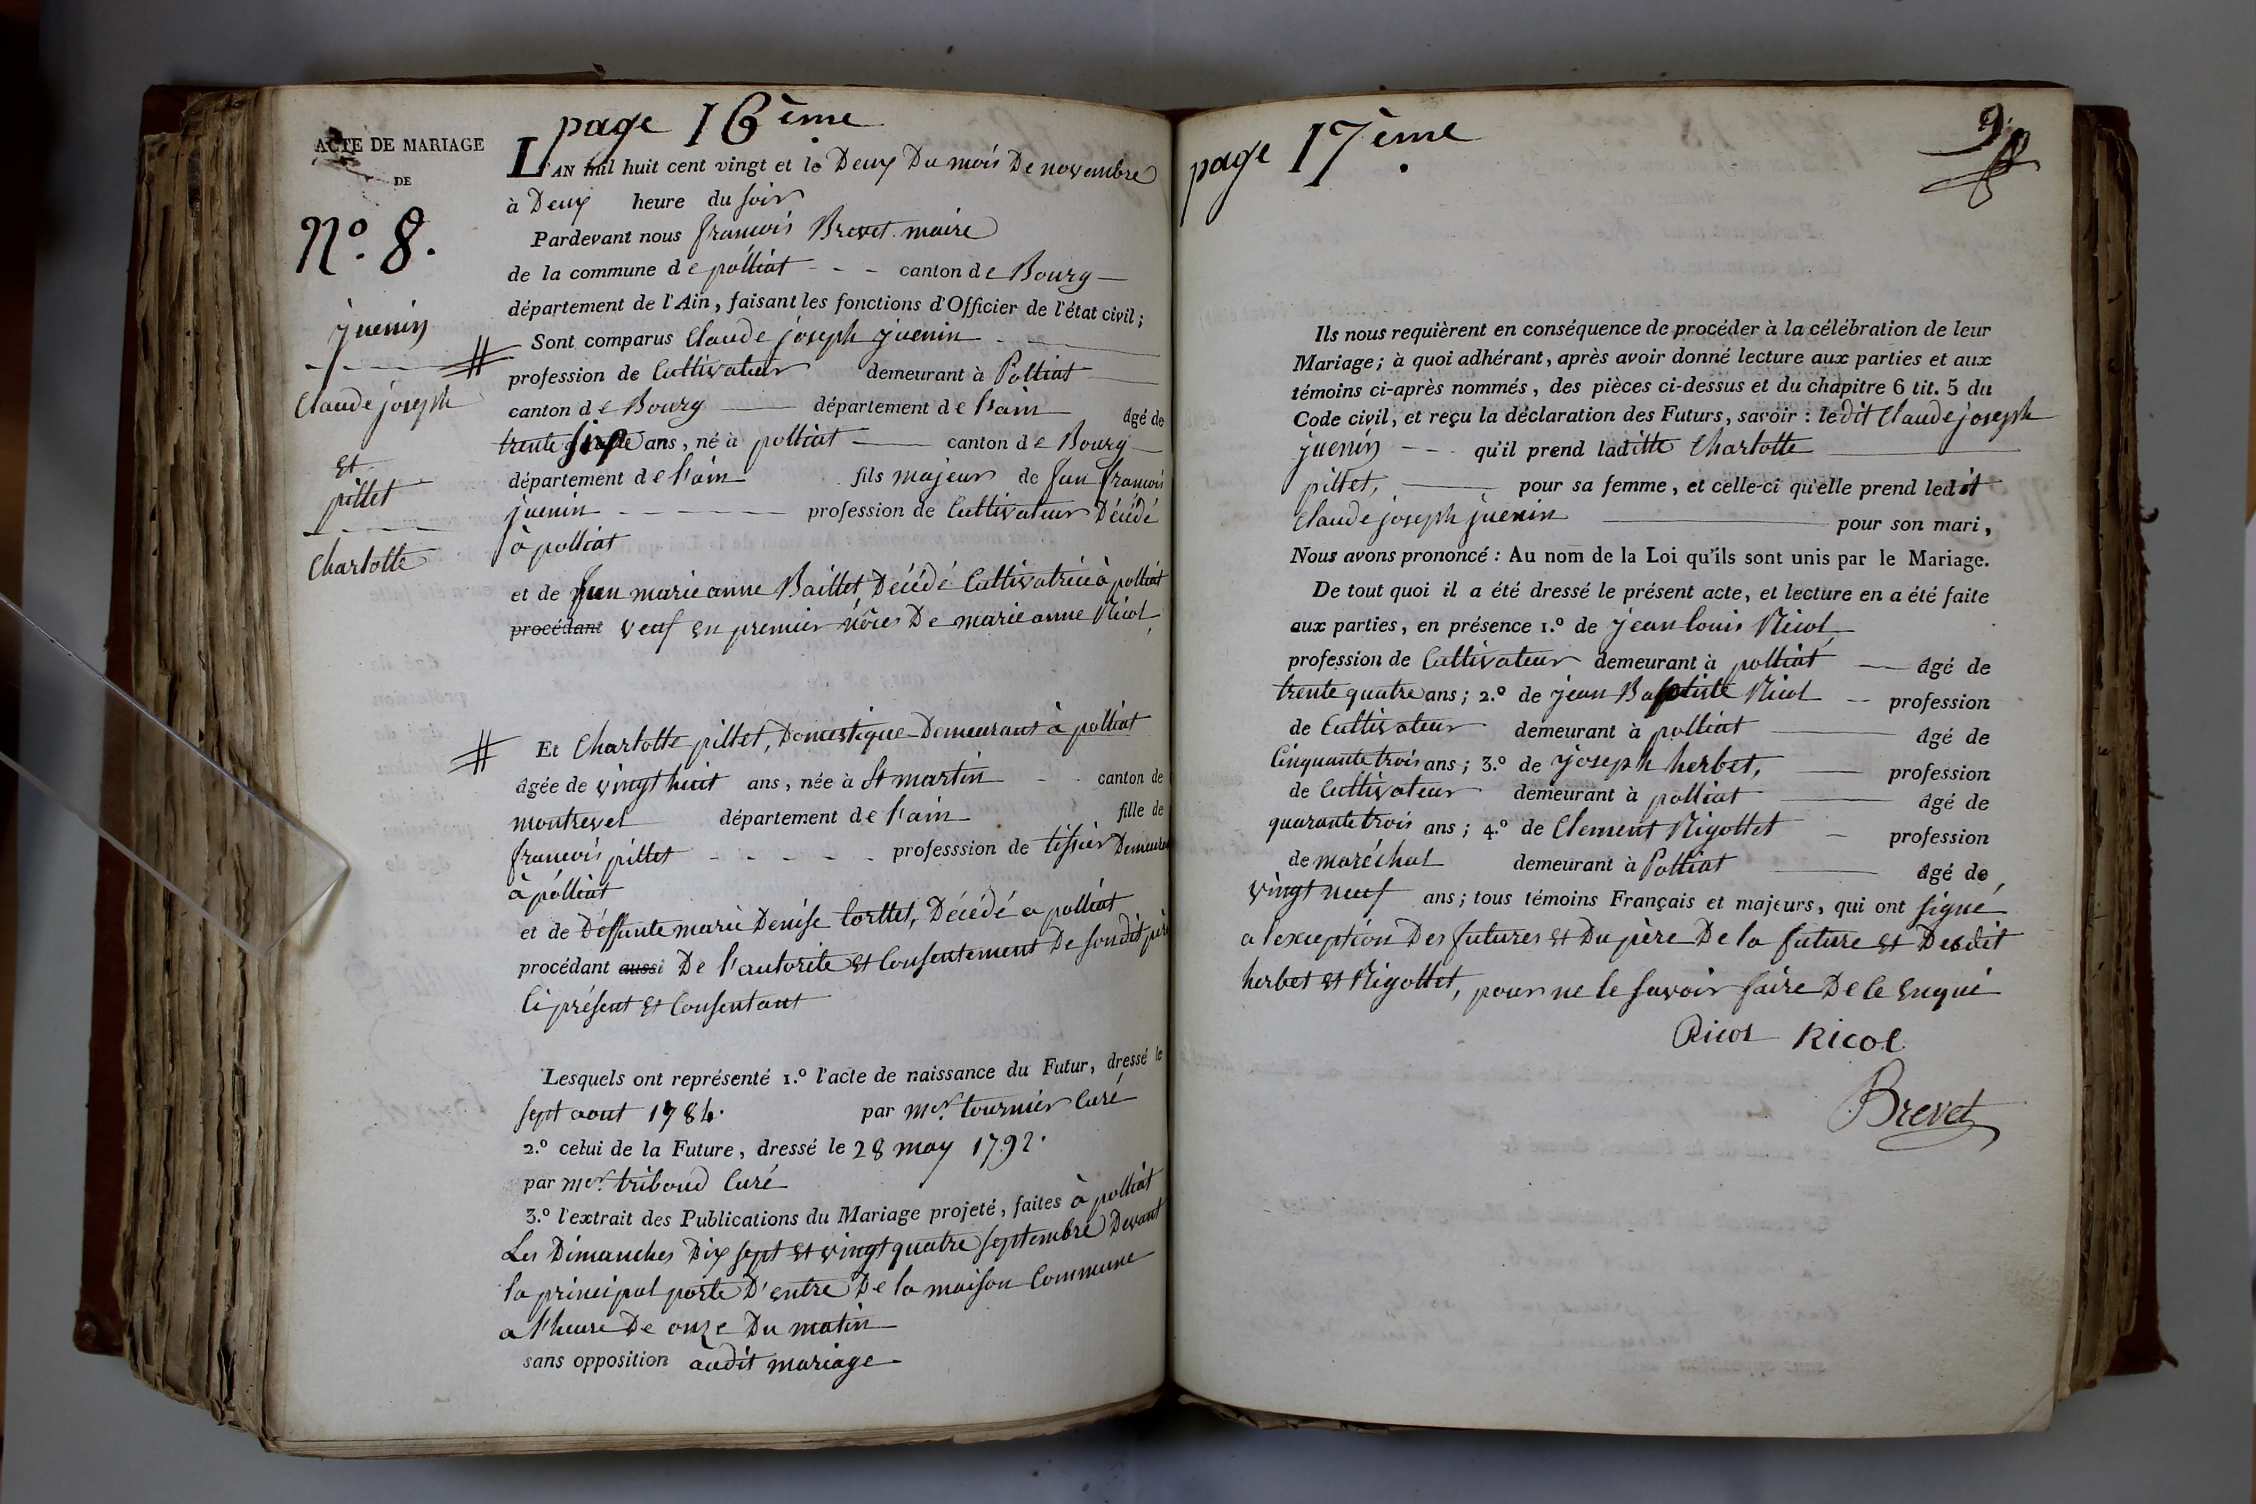 page 16ème
ACTE DE MARIAGE
DE
N.º 8.
juenin
Claude joseph
Et
pillet
Charlotte
L'AN mil huit cent vingt et le Deux Du mois De novembre
à Deux heure du soir
Pardevant nous francois Brevet maire
de la commune de polliat - - - canton de Bourg
département de l'Ain, faisant les fonctions d'Officier de l'état civil;
Sont comparus Claude joseph juenin
profession de Cultivateur demeurant à Polliat
canton de Bourg département de l'ain âgé de
trente six ans, né à polliat canton de Bourg
département de l'ain fils majeur de francois
juenin profession de Cultivateur Décédé
à polliat
et de marie anne Baillet, Décédé Cultivatrice à polliat
procédant veuf en premier nôces De marie anne Ricol
Et Charlotte pillet, Domestique Demeurant à polliat
âgée de vingt huit ans, née à St martin canton de
montrevel département de l'ain fille de
francois pillet professsion de tissier
à polliat
et de Déffunte marie Denise Corttet, Décédé a polliat
procédant aussi De l'autorite et Consentement De son dit père
Ci présent et Consentant
Lesquels ont représenté 1.º l'acte de naissance du Futur, dressé le
sept aout 1784. par mer. tournier Curé
2.º celui de la Future, dressé le 28 may 1792.
par mer. triboud Curé
3.º l'extrait des Publications du Mariage projeté, faites à polliat
Les Dimanches Dix sept et vingt quatre septembre Devant
la principal porte D'entre De la maison Commune
a l'heure De onze Du matin
sans opposition audit mariage
page 17ème
9
Ils nous requièrent en conséquence de procéder à la célébration de leur
Mariage; à quoi adhérant, après avoir donné lecture aux parties et aux
témoins ci-après nommés, des pièces ci-dessus et du chapitre 6 tit. 5 du
Code civil, et reçu la déclaration des Futurs, savoir : le dit Claude joseph
juenin - - - qu'il prend laditte Charlotte
pillet, pour sa femme, et celle-ci qu'elle prend ledit
Claude joseph juenin pour son mari,
Nous avons prononcé : Au nom de la Loi qu'ils sont unis par le Mariage.
De tout quoi il a été dressé le présent acte, et lecture en a été faite
aux parties, en présence 1.º de jean louis Ricol,
profession de Cultivateur demeurant à polliat âgé de
trente quatre ans; 2.º de jean Baptiste Ricol -- profession
de Cultivateur demeurant à polliat âgé de
Cinquante trois ans; 3.º de joseph herbet, profession
de Cultivateur demeurant à polliat âgé de
quarante trois ans; 4.º de Clement Rigottet profession
de maréchal demeurant à Polliat âgé de
vingt neuf ans; tous témoins Français et majeurs, qui ont signé,
a l'exception Des futures et Du père De la future et Desdit
herbet et Rigottet, pour ne le savoir faire De Ce Enqui
Ricol Ricol
Brevet